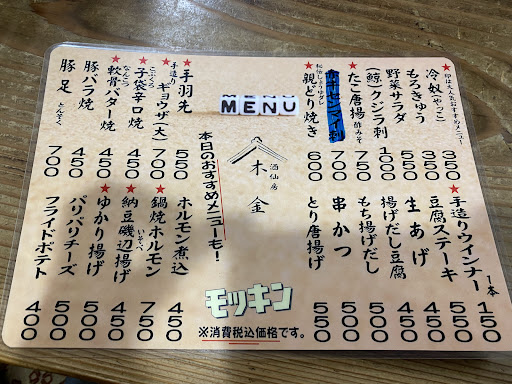 ★印は大人気おすすめメニュー
冷奴(やっこ) 350
もろきゅう 350
野菜サラダ 550
(鯨)クジラ刺 1000
たこ唐揚 酢みそ 750
センマイ刺 700
★親どり焼き 秘伝しょうゆダレ 600
★手造りウインナー 1本 150
豆腐ステーキ 550
生あげ 450
揚げだし豆腐 400
もち揚げだし
串かつ 500
★とり唐揚げ 550
MENU
酒仙房
木金
本日のおすすめメニューも!
モッキン
※消費税込価格です。
★手羽先 550
手造りギョウザ(大) 700
★子袋辛口焼 こぶくろ 450
★軟骨バター焼 なんこつ 450
豚バラ焼 450
豚足 とんそく 700
ホルモン煮込 450
★鍋焼ホルモン 750
★納豆磯辺揚げ いそべ 450
★ゆかり揚げ
パリパリチーズ
フライドポテト 400